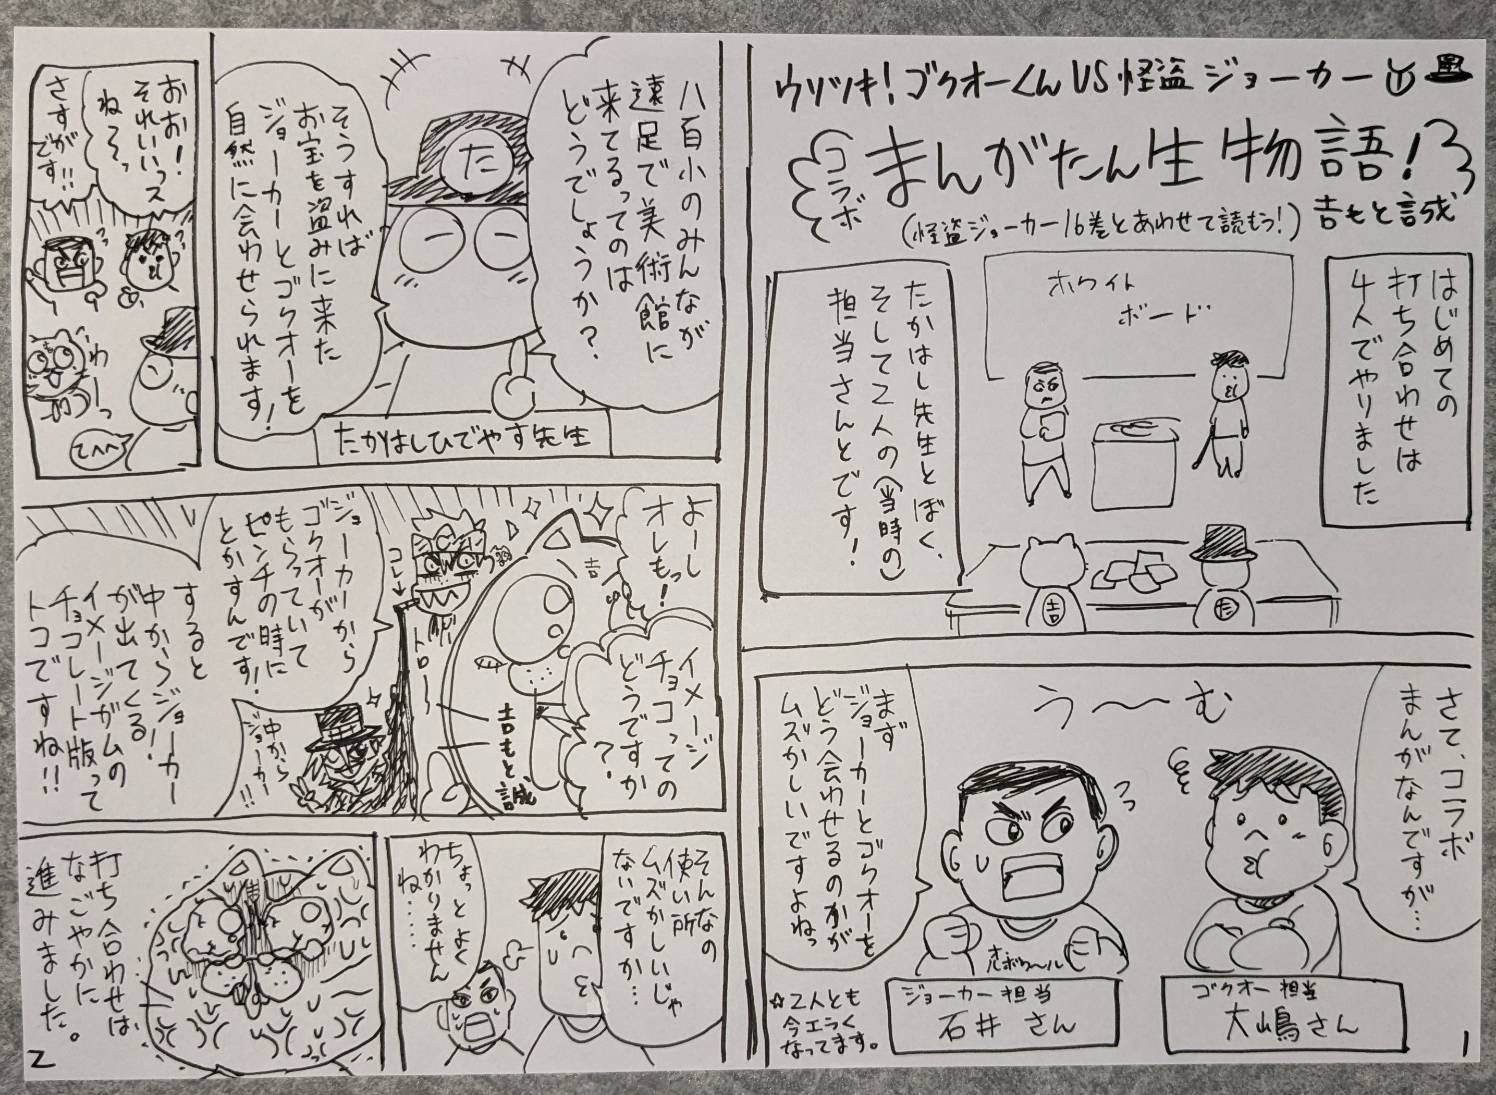 ウソツキ!ゴクオーくんVS怪盗ジョーカー
コラボ
まんがたん生物語!
(怪盗ジョーカー16巻とあわせて読もう!)
吉もと誠
はじめての
打ち合わせは
4人でやりました
ホワイト
ボード
たかはし先生とぼく、
そして2人の(当時の)
担当さんとです!
吉
た
さて、コラボ
まんがなんですが…
う〜〜む
まず
ジョーカーとゴクオーを
どう会わせるのかが
ムズかしいですよねっ
オレボクール
ゴクオー担当
大嶋さん
ジョーカー担当
石井さん
☆2人とも
今エラく
なってます。
1
八百小のみんなが
遠足で美術館に
来てるってのは
どうでしょうか?
た
そうすれば
お宝を盗みに来た
ジョーカーとゴクオーを
自然に会わせられます!
たかはしひでやす先生
おお!
それいいっス
ね〜っ
さすが
です!!
わーっ
てへへ
よーし
オレもっ!
吉
イメージ
チョコっての
どうですか
?
吉もと誠
コレ→
トロ〜
ジョーカーから
ゴクオーが
もらっていて
ピンチの時に
とかすんです!
中から
ジョーカー!!
すると
中からジョーカー
が出てくる!
イメージガムの
チョコレート版って
トコですね!!
そんなの
使い所
ムズかしいじゃ
ないですか…
ちょっとよく
わかりません
ね……
打ち合わせは、
なごやかに
進みました。
2